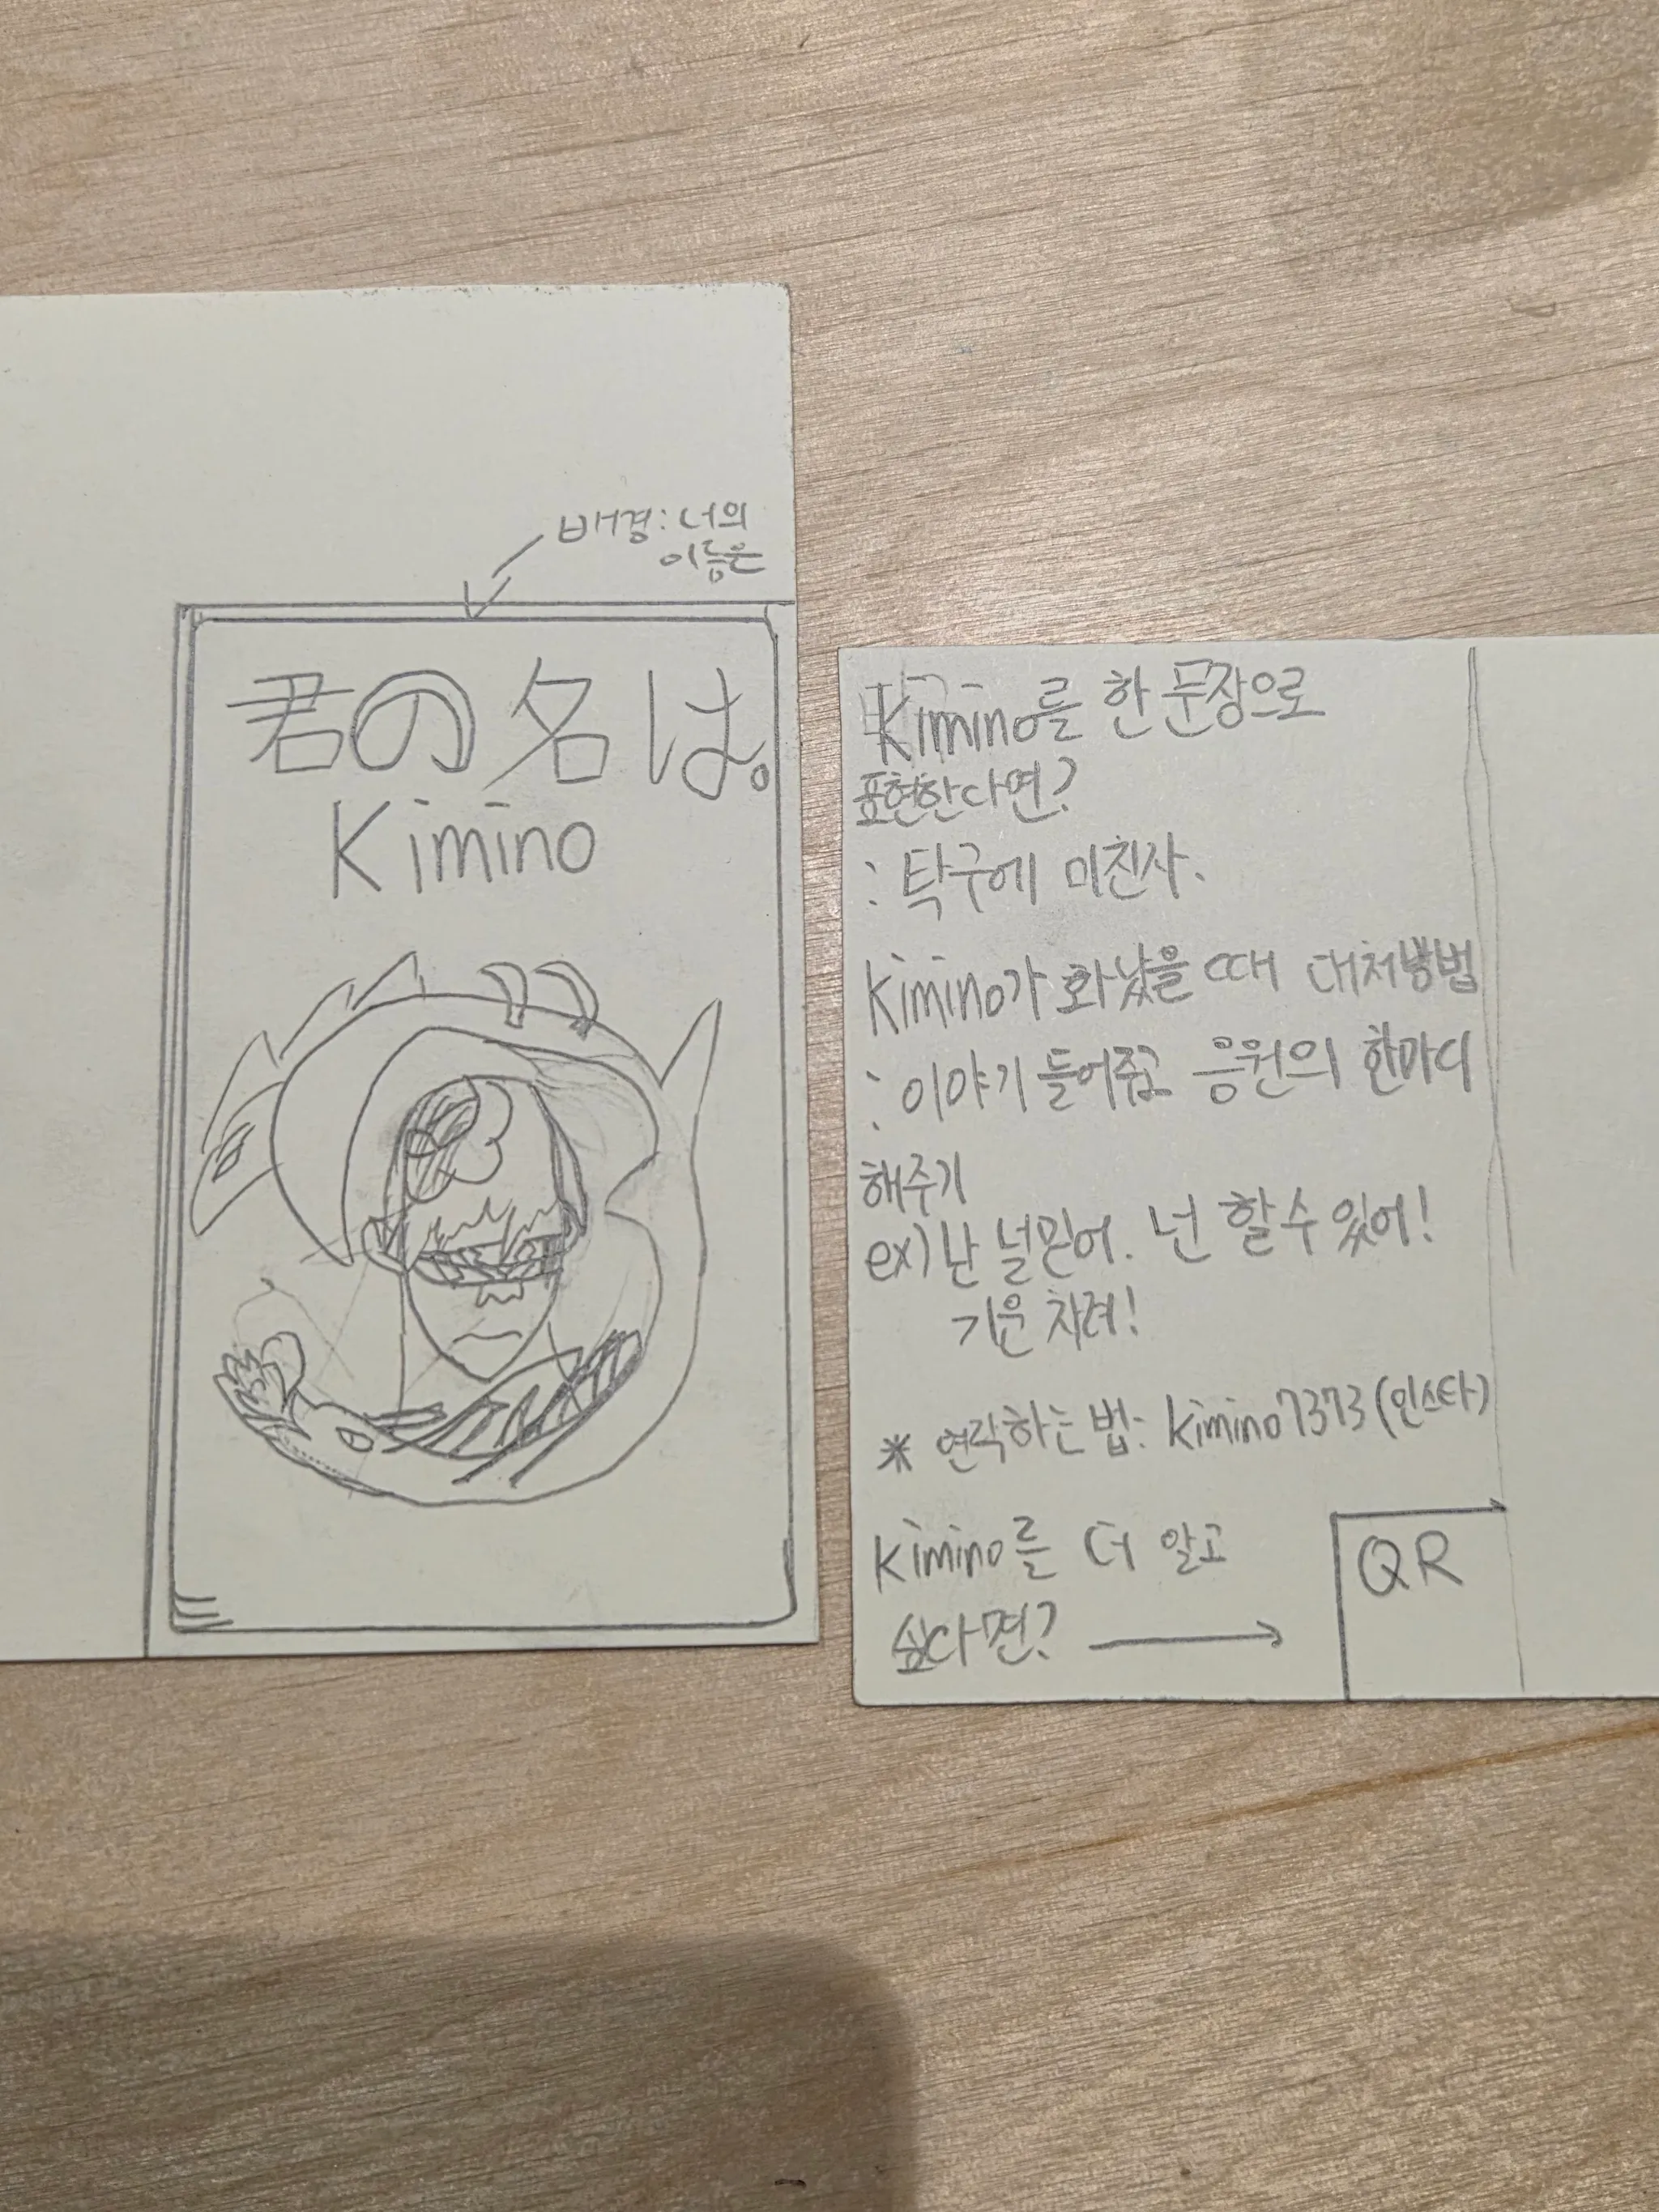 배경: 너의
이름은
君の名は。
Kimino
Kimino를 한 문장으로
표현한다면?
: 탁구에 미친사.
Kimino가 화났을 때 대처방법
: 이야기 들어주고 응원의 한마디
해주기
ex) 난 널믿어. 넌 할 수 있어!
기운 차려!
* 연락하는 법: kimino7373 (인스타)
Kimino를 더 알고
싶다면? →
QR